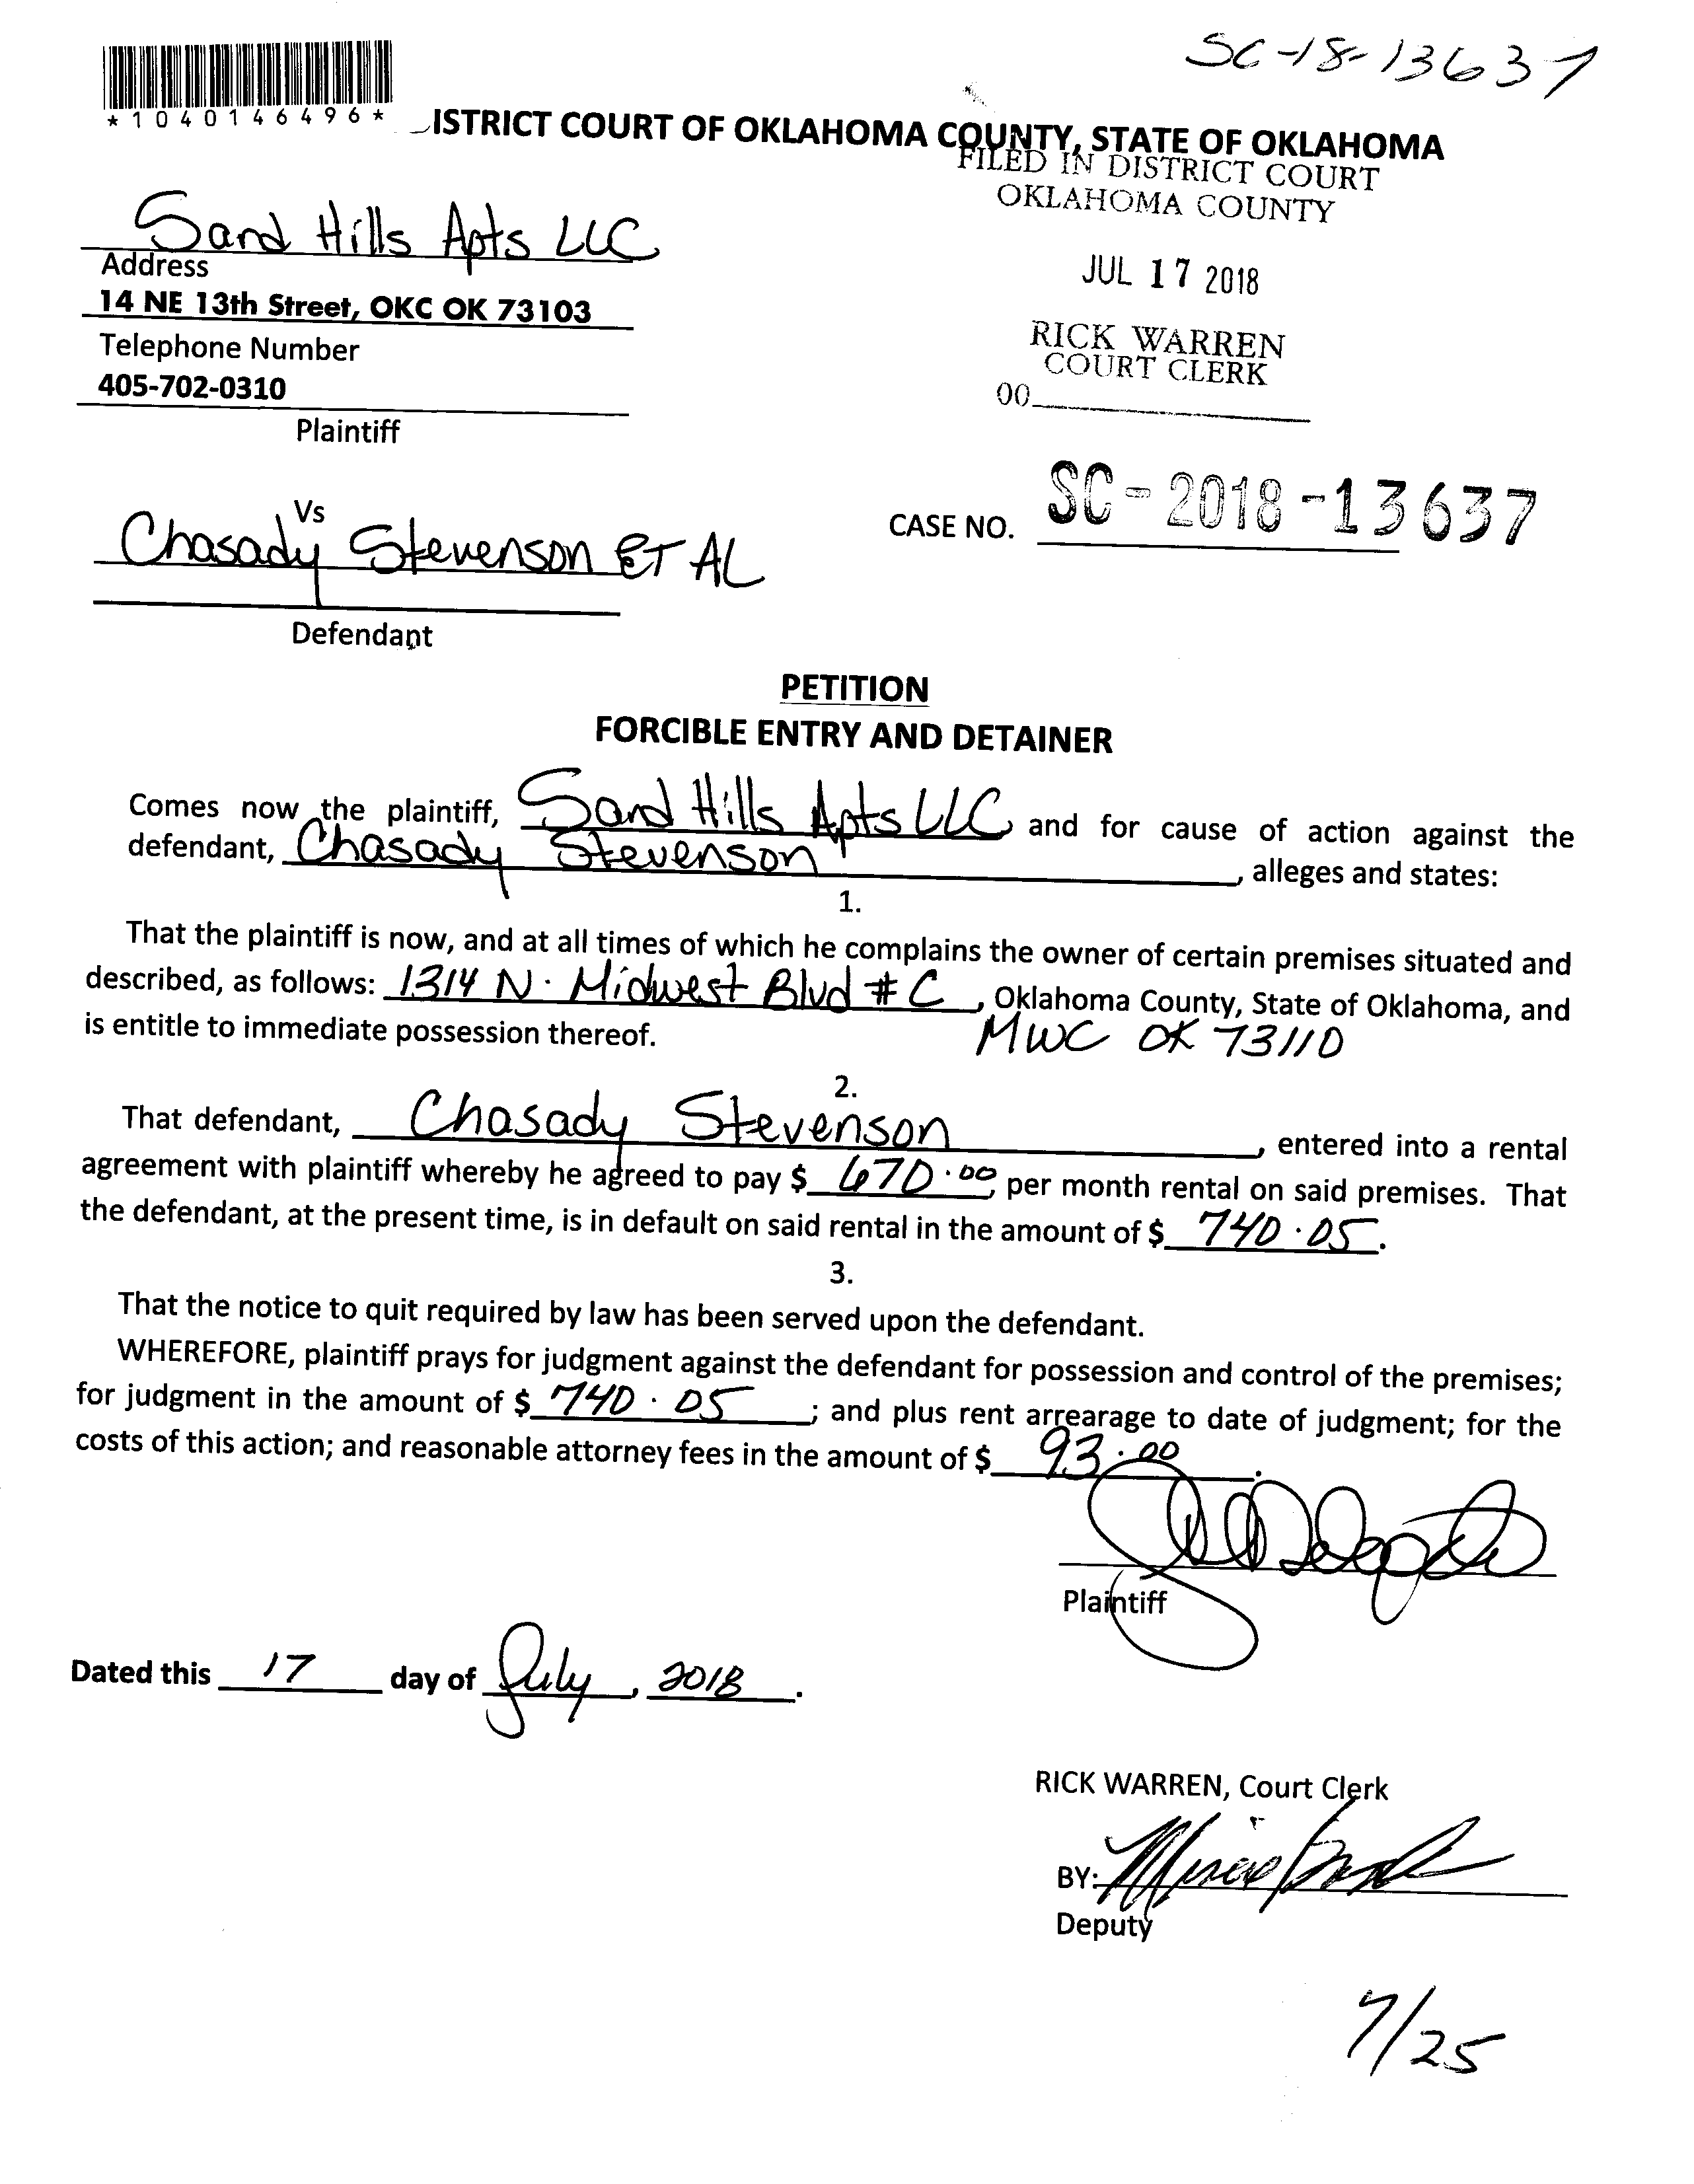 SC-18-13637
*1040146496*
ISTRICT COURT OF OKLAHOMA COUNTY, STATE OF OKLAHOMA
FILED IN DISTRICT COURT
OKLAHOMA COUNTY
Sand Hills Apts LLC
Address
14 NE 13th Street, OKC OK 73103
JUL 17 2018
Telephone Number
405-702-0310
RICK WARREN
COURT CLERK
00
Plaintiff
Vs
CASE NO. SC-2018-13637
Chasady Stevenson ET AL
Defendant
PETITION
FORCIBLE ENTRY AND DETAINER
Comes now the plaintiff, Sand Hills Apts LLC and for cause of action against the
defendant, Chasady Stevenson, alleges and states:
1.
That the plaintiff is now, and at all times of which he complains the owner of certain premises situated and
described, as follows: 1314 N. Midwest Blvd # C, Oklahoma County, State of Oklahoma, and
is entitle to immediate possession thereof. MWC OK 73110
2.
That defendant, Chasady Stevenson, entered into a rental
agreement with plaintiff whereby he agreed to pay $ 670.00, per month rental on said premises. That
the defendant, at the present time, is in default on said rental in the amount of $ 740.05.
3.
That the notice to quit required by law has been served upon the defendant.
WHEREFORE, plaintiff prays for judgment against the defendant for possession and control of the premises;
for judgment in the amount of $ 740.05; and plus rent arrearage to date of judgment; for the
costs of this action; and reasonable attorney fees in the amount of $ 93.00.
Plaintiff
Dated this 17 day of July, 2018.
RICK WARREN, Court Clerk
BY:
Deputy
7/25